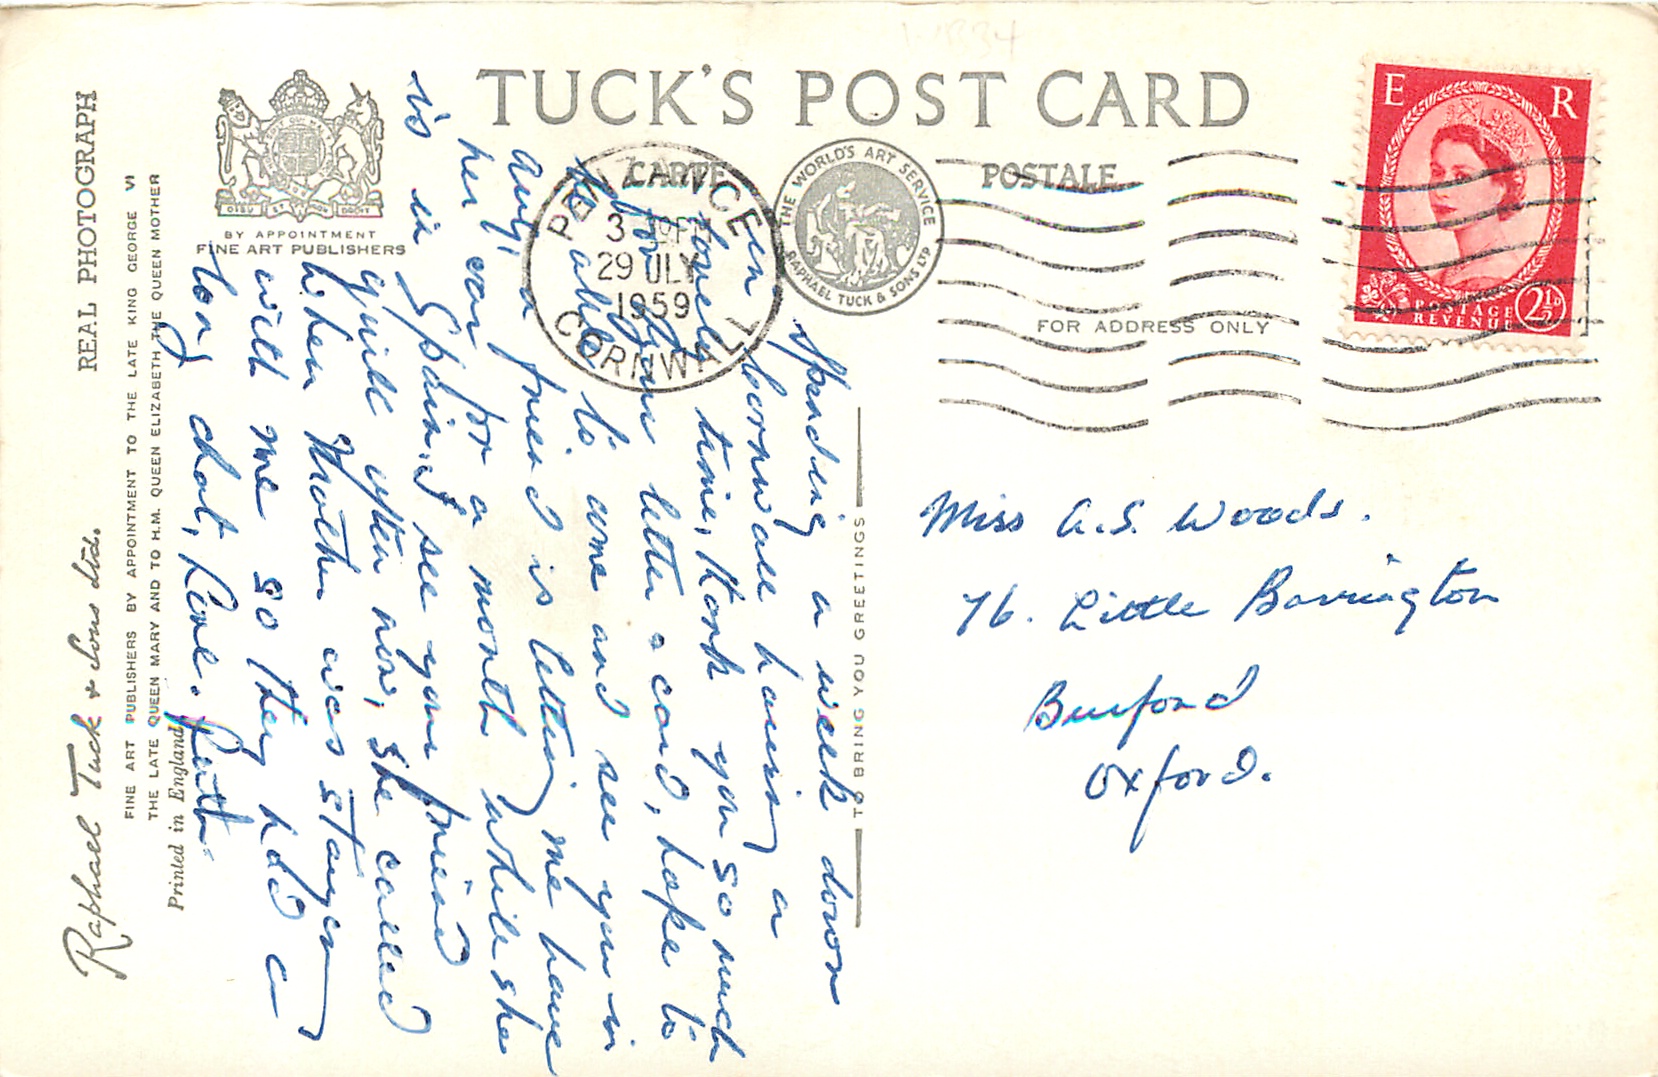 TUCK'S POST CARD
CARTE POSTALE
REAL PHOTOGRAPH
BY APPOINTMENT
FINE ART PUBLISHERS
Raphael Tuck & Sons Ltd.
FINE ART PUBLISHERS BY APPOINTMENT TO THE LATE KING GEORGE VI
THE LATE QUEEN MARY AND TO H.M. QUEEN ELIZABETH THE QUEEN MOTHER
Printed in England
THE WORLD'S ART SERVICE
RAPHAEL TUCK & SONS LTD
PENZANCE
3
29 JLY
1959
CORNWALL
E R
POSTAGE
REVENUE
2½D
FOR ADDRESS ONLY
TO BRING YOU GREETINGS
Spending a week down
in Cornwall having a
lovely time, thank you so much
for your letter & card, hope to
be able to come and see you in
Aug, a friend is letting me have
her car for a month while she
is in Spain. I see your friend
quite often now, she called
when Mother was staying
with me so they had a
long chat, Love. Ruth.
Miss A.S. Woods.
76. Little Barrington
Burford
Oxford.